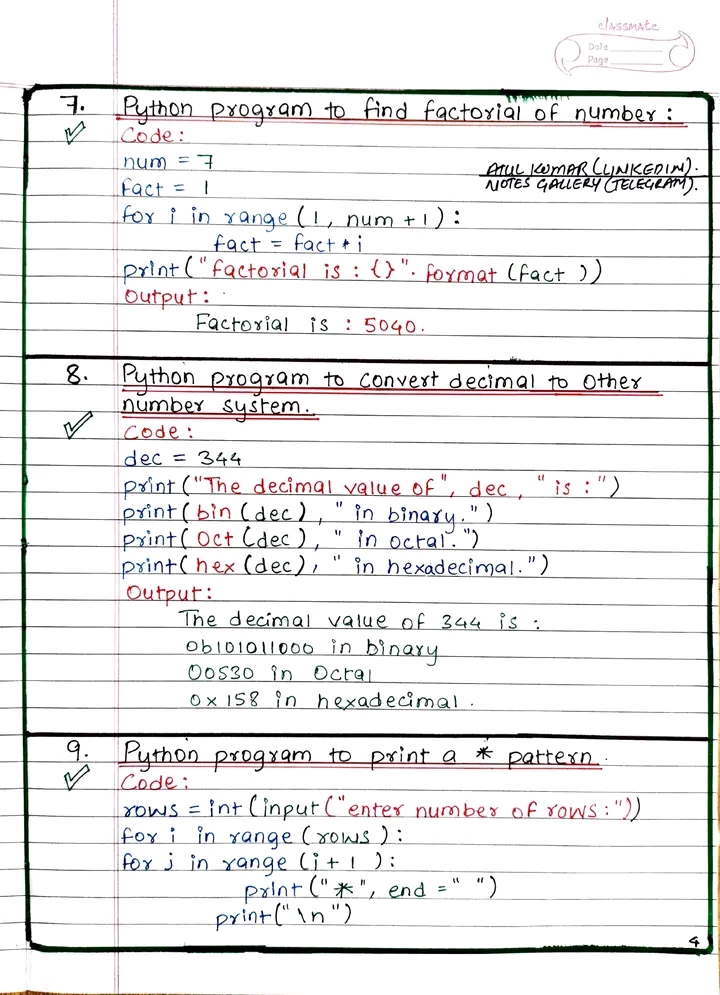 classmate
Date
Page
7. Python program to find factorial of number :
Code :
num = 7
ATUL KUMAR (LINKEDIN).
fact = 1
NOTES GALLERY (TELEGRAM).
for i in range (1, num + 1) :
fact = fact * i
print ("factorial is : {}". format (fact ))
Output :
Factorial is : 5040.
8. Python program to convert decimal to other
number system.
Code :
dec = 344
print ("The decimal value of", dec, " is :")
print ( bin (dec), " in binary.")
print ( oct (dec), " in octal.")
print ( hex (dec), " in hexadecimal.")
Output :
The decimal value of 344 is :
0b101011000 in binary
00530 in Octal
0x158 in hexadecimal.
9. Python program to print a * pattern.
Code :
rows = int (input ("enter number of rows : "))
for i in range (rows) :
for j in range (i + 1 ) :
print (" * ", end = " ")
print (" \n ")
4